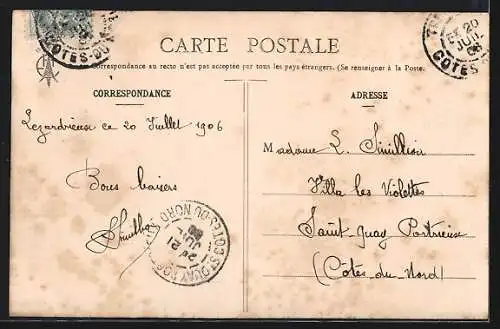 CARTE POSTALE
Correspondance au recto n'est pas acceptée par tous les pays étrangers. (Se renseigner à la Poste.
CORRESPONDANCE
ADRESSE
Lezardrieux ce 20 Juillet 1906
Bons baisers
Madame L.
Villa les Violettes
Saint Quay Portrieux
(Côtes du Nord)
COTES-DU-N
20
JUIL
06
COTES
ST QUAY
DU NORD
21
JUIL
06